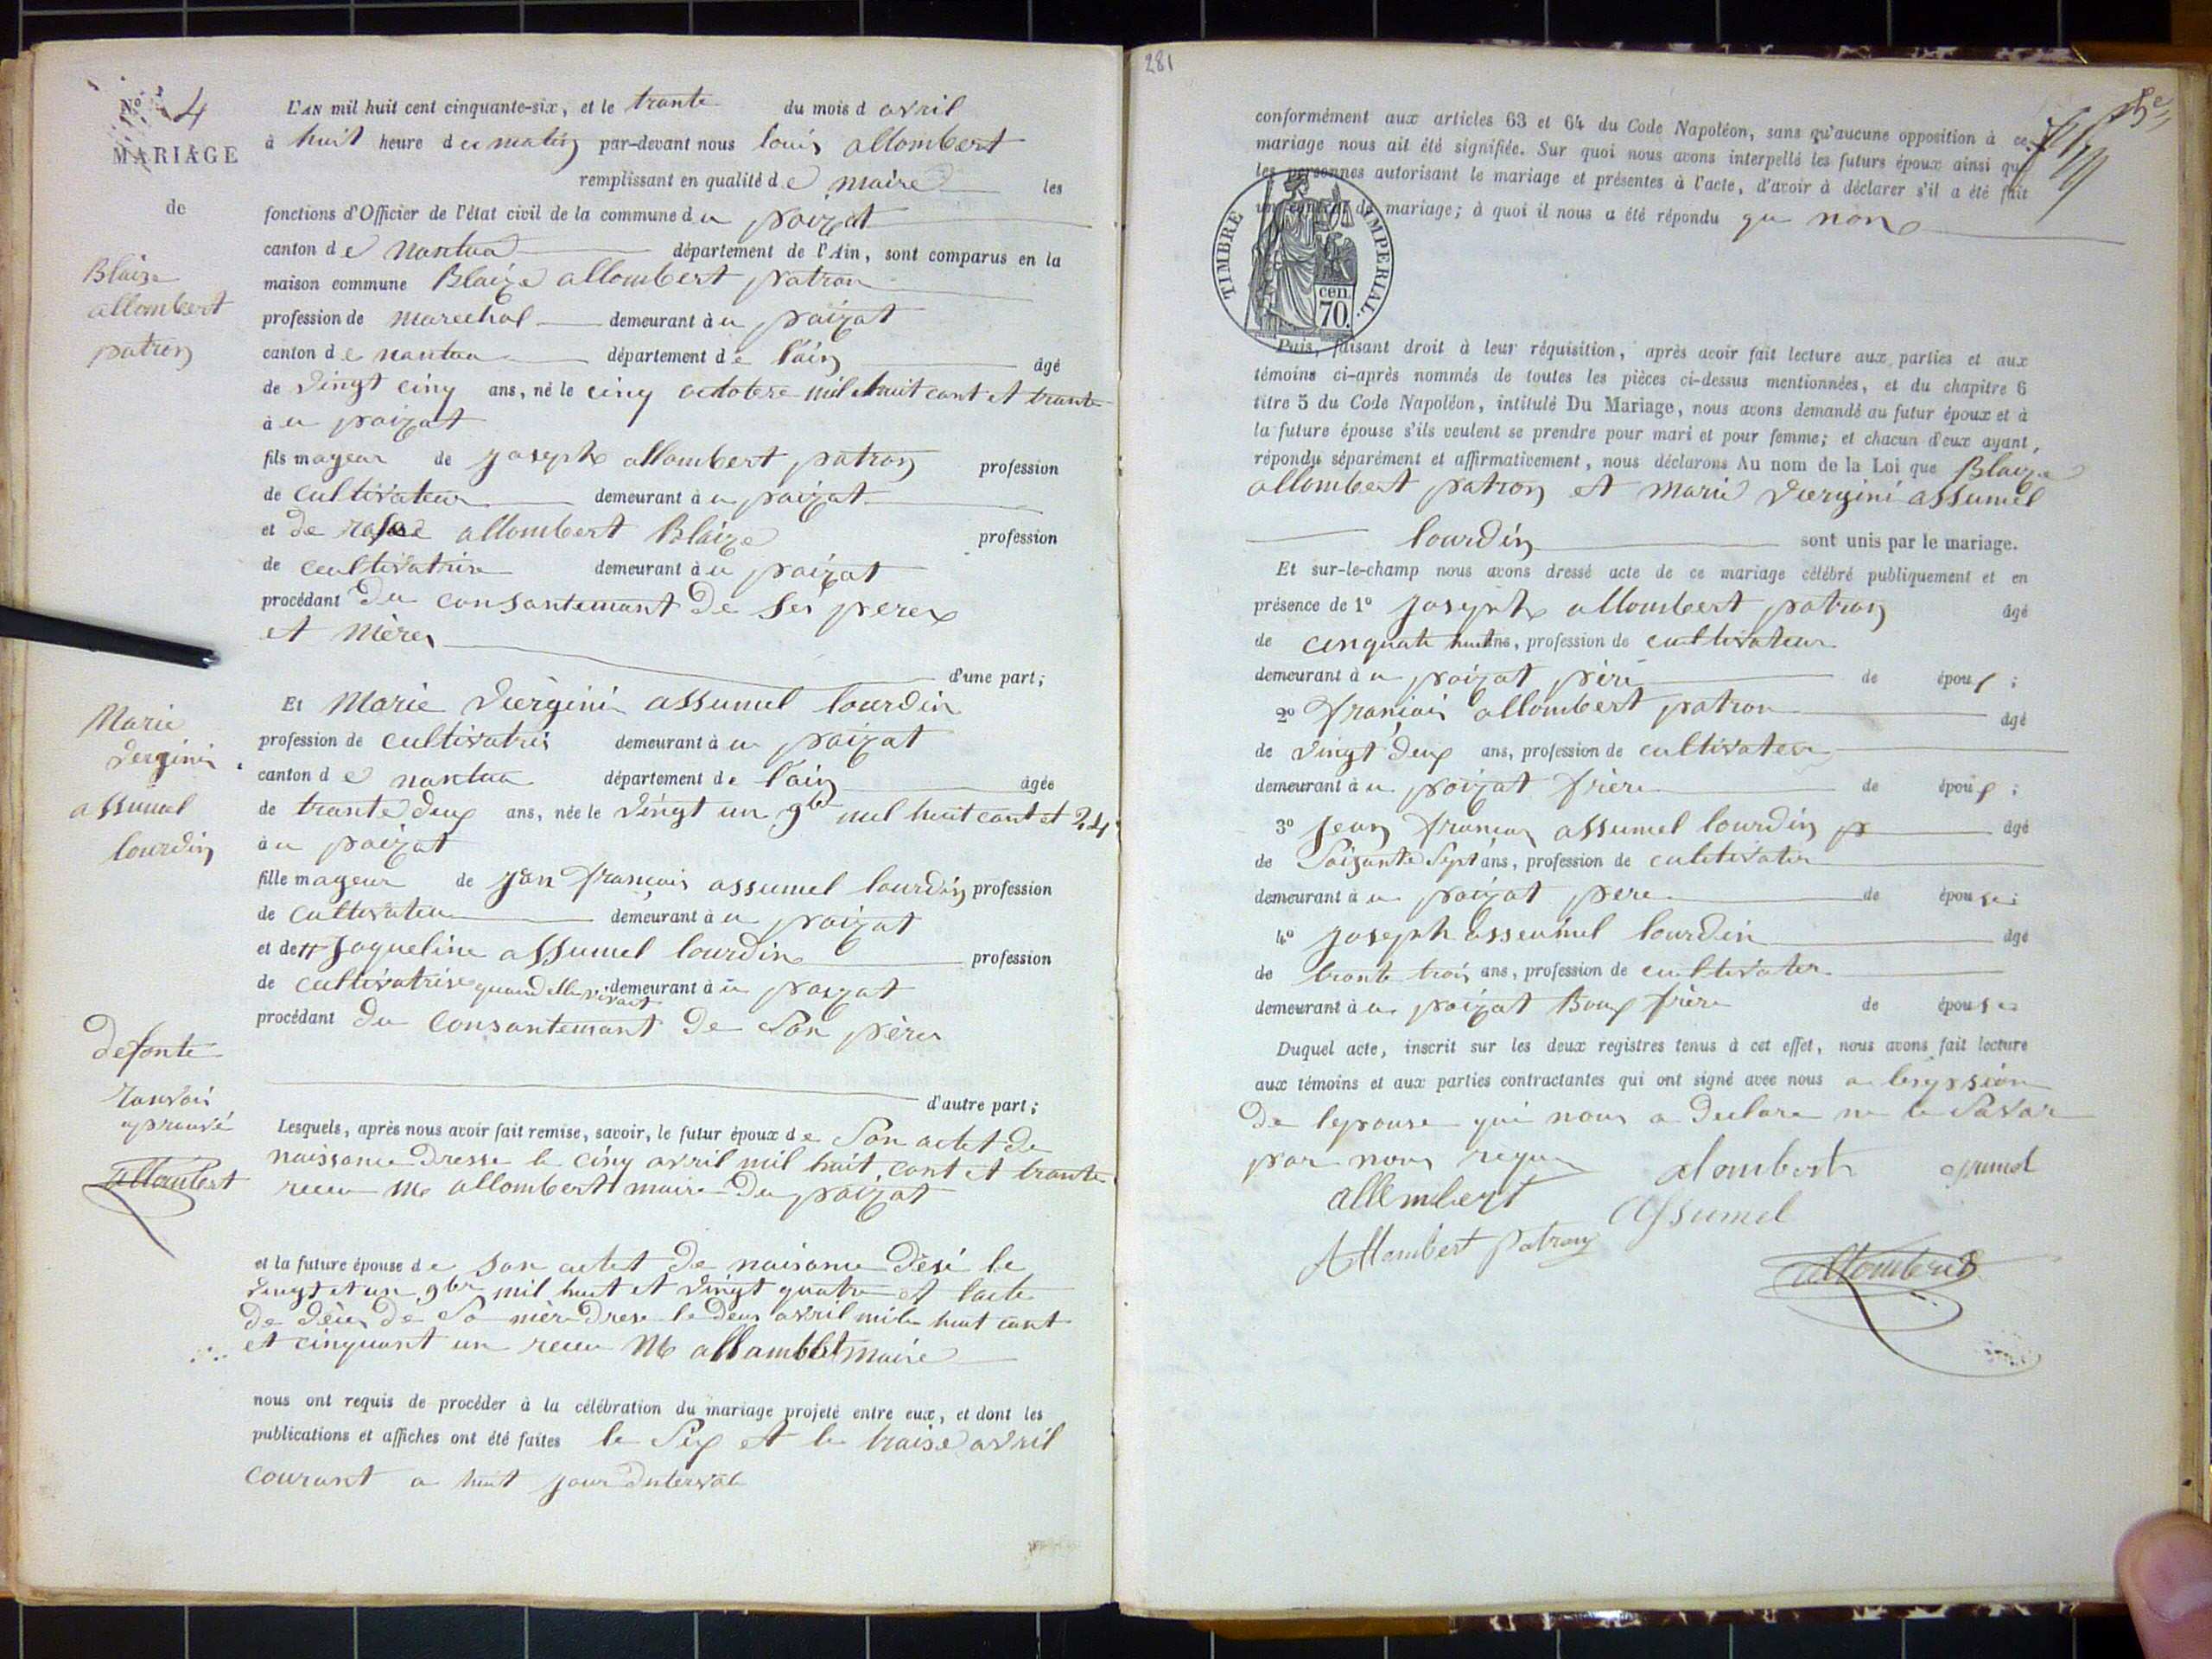 N° 4
MARIAGE
de
Blaize
allombert
patron
L'AN mil huit cent cinquante-six, et le trante du mois d avril
à huit heure du matin par-devant nous louis allombert
remplissant en qualité de maire les
fonctions d'Officier de l'état civil de la commune du poizat
canton de nantua département de l'Ain, sont comparus en la
maison commune Blaize allombert patron
profession de marechal demeurant à u poizat
canton de nantua département de l'ain âgé
de vingt cinq ans, né le cinq octobre mil huit cant et trante
à u poizat
fils mageur de joseph allombert patron profession
de cultivateur demeurant à u poizat
et de rose allombert Blaize profession
de cultivatrise demeurant à u poizat
procédant du consantemant de ses peres
et mères
d'une part;
Marie
verginie
assumel
lourdin
Et Marie viergini assumel lourdin
profession de cultivatris demeurant à u poizat
canton de nantua département de l'ain âgée
de trante deux ans, née le vingt un 9bre mil huit cant et 24
à u poizat
fille mageur de jan françois assumel lourdin profession
de cultivateu demeurant à u poizat
et de # Jaqueline assumel lourdin profession
de cultivatrise quand elle vivait demeurant à u poizat
procédant du consantemant de son père
d'autre part;
defonte
ranvoi
aprouvé
allombert
Lesquels, après nous avoir fait remise, savoir, le futur époux de son actet de
naissance dresse le cinq avril mil huit cant et trante
receu M allombert maire du poizat
et la future épouse de son actet de naisance désé le
vingt et un 9bre mil huit et vingt quatre et l'acte
de décé de sa mère drese le deus avril mile huit cant
et cinquant un receu M allambbt maire
nous ont requis de procéder à la célébration du mariage projeté entre eux, et dont les
publications et affiches ont été faites le six et le traise avril
courant a huit jour dinterval
281
conformément aux articles 63 et 64 du Code Napoléon, sans qu'aucune opposition à ce
mariage nous ait été signifiée. Sur quoi nous avons interpellé les futurs époux ainsi que
les personnes autorisant le mariage et présentes à l'acte, d'avoir à déclarer s'il a été fait
un contrat de mariage; à quoi il nous a été répondu que non
TIMBRE IMPERIAL.
70 cen.
Puis, faisant droit à leur réquisition, après avoir fait lecture aux parties et aux
témoins ci-après nommés de toutes les pièces ci-dessus mentionnées, et du chapitre 6
titre 5 du Code Napoléon, intitulé Du Mariage, nous avons demandé au futur époux et à
la future épouse s'ils veulent se prendre pour mari et pour femme; et chacun d'eux ayant,
répondu séparément et affirmativement, nous déclarons Au nom de la Loi que Blaize
allombert patron et marie viergini assumel
lourdin sont unis par le mariage.
Et sur-le-champ nous avons dressé acte de ce mariage célébré publiquement et en
présence de 1° joseph allombert patron âgé
de cinquate huit ans, profession de cultivateur
demeurant à u poizat père de époux;
2° françois allombert patron âgé
de vingt deux ans, profession de cultivateu
demeurant à u poizat frère de époux;
3° jean françoi assumel lourdin p âgé
de soizante sept ans, profession de cultivateur
demeurant à u poizat pere de épouse;
4° joseph asseumel lourdin âgé
de trante trois ans, profession de cultivater
demeurant à u poizat Baux frère de épouse
Duquel acte, inscrit sur les deux registres tenus à cet effet, nous avons fait lecture
aux témoins et aux parties contractantes qui ont signé avec nous a lexpssion
de lepouse qui nous a declare ne le savar
par nous requi
allembert alombert asumel
Assumel
Allombert Patron
allombert